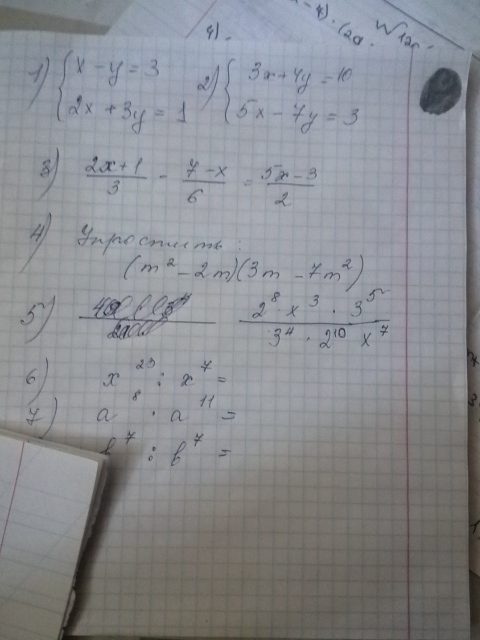 1) { x - y = 3
2x + 3y = 1
2) { 3x + 4y = 10
5x - 7y = 3
3) (2x+1)/3 - (7-x)/6 = (5x-3)/2
4) Упростить:
(m² - 2m)(3m - 7m²)
5) (2⁸ · x³ · 3⁵)/(3⁴ · 2¹⁰ x⁷)
6) x²³ : x⁷ =
7) a⁸ · a¹¹ =
b⁷ : b⁷ =